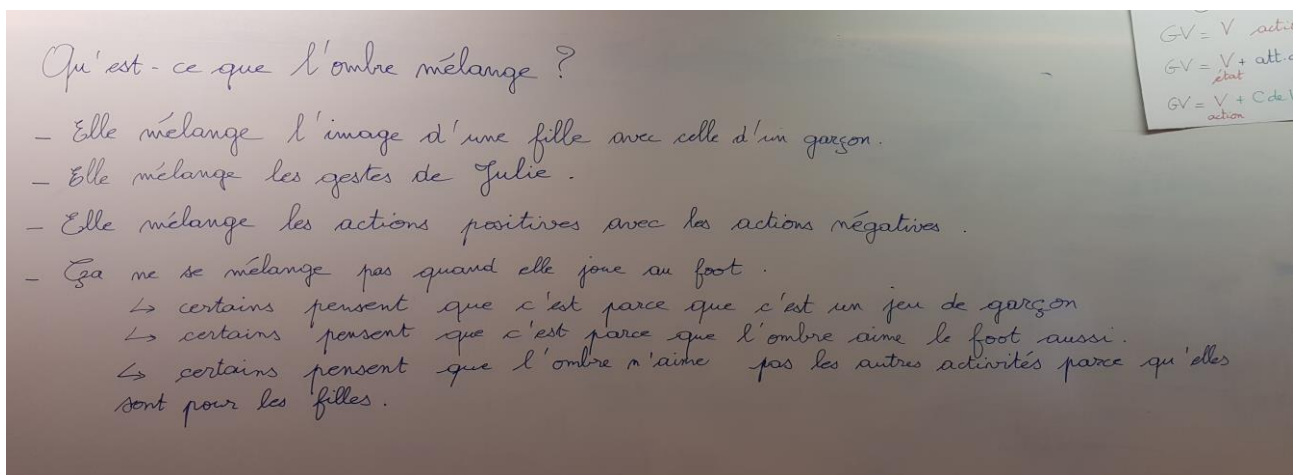 Qu'est-ce que l'ombre mélange ?
GV = V
GV = V + att.
état
GV = V + C de
action
- Elle mélange l'image d'une fille avec celle d'un garçon.
- Elle mélange les gestes de Julie.
- Elle mélange les actions positives avec les actions négatives.
- Ça ne se mélange pas quand elle joue au foot.
↳ certains pensent que c'est parce que c'est un jeu de garçon
↳ certains pensent que c'est parce que l'ombre aime le foot aussi.
↳ certains pensent que l'ombre n'aime pas les autres activités parce qu'elles
sont pour les filles.